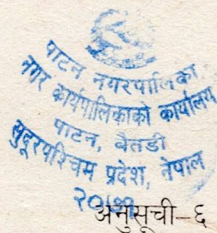 पाटन नगरपालिका
नगर कार्यपालिकाको कार्यालय
पाटन, बैतडी
सुदूरपश्चिम प्रदेश, नेपाल
२०७३
अनुसूची-६